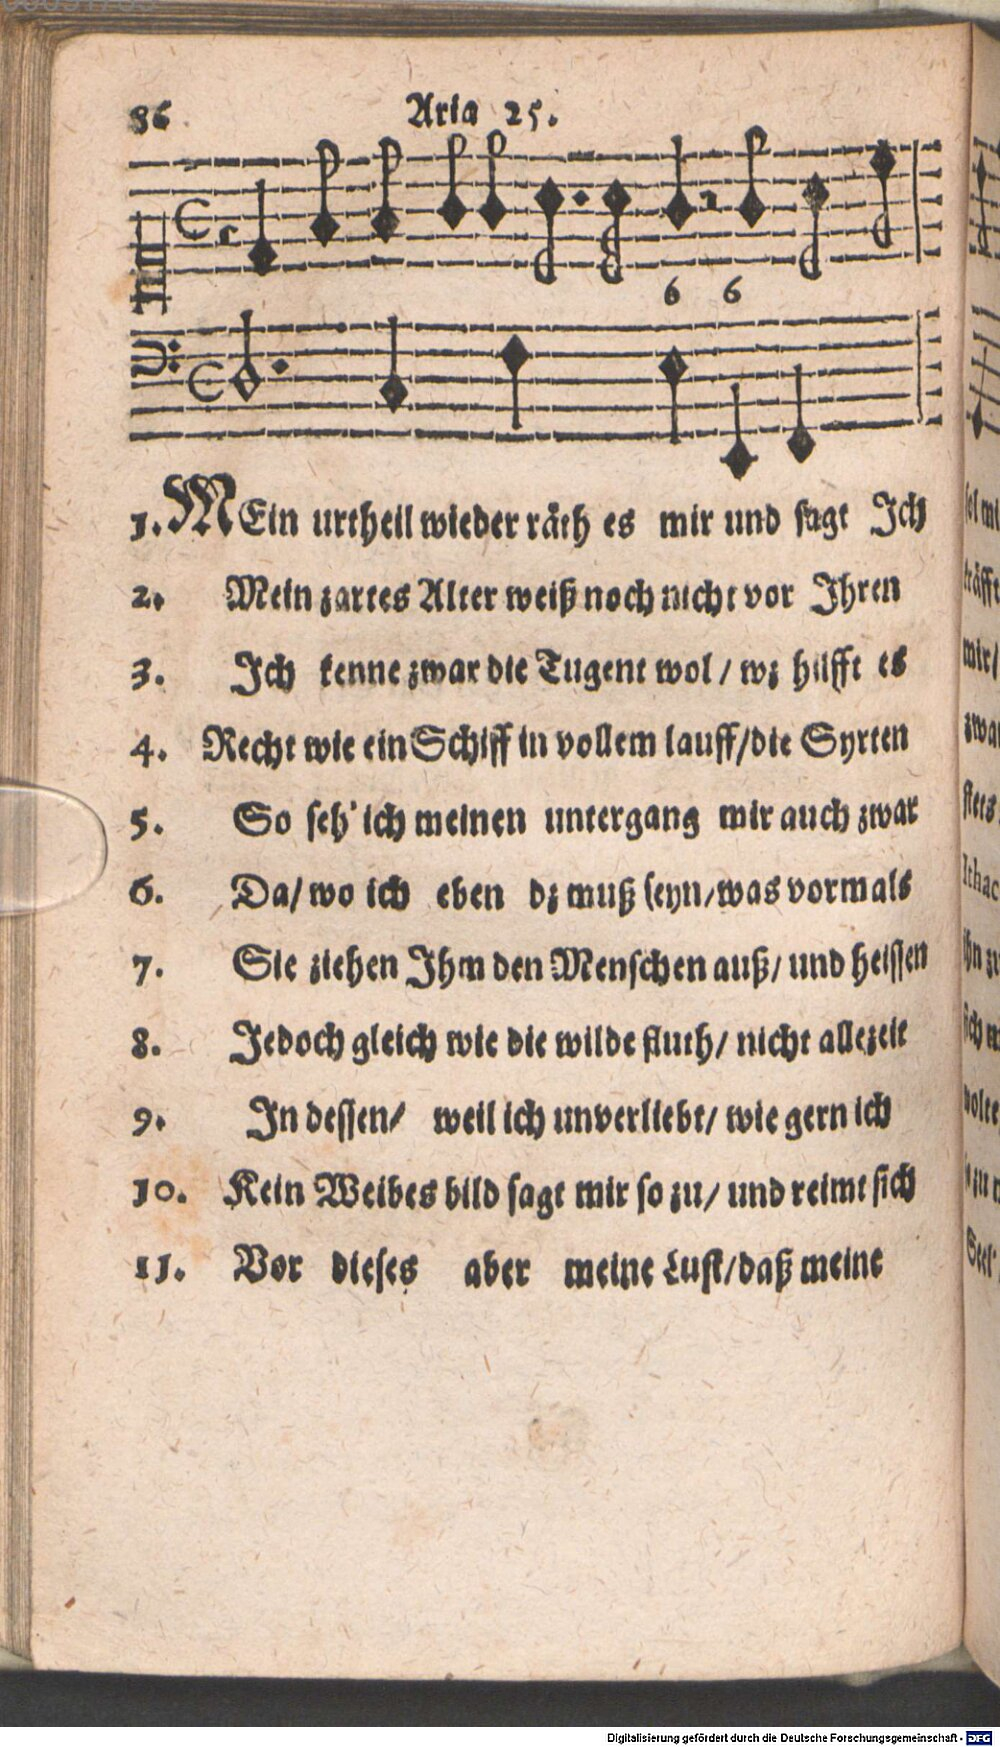 86
Aria 25.
6 6
1. MEin urtheil wieder räth es mir und sagt Ich
2. Mein zartes Alter weiß noch nicht vor Ihren
3. Ich kenne zwar die Tugent wol / wz hilfft es
4. Recht wie ein Schiff in vollem lauff/die Syrten
5. So seh' ich meinen untergang mir auch zwar
6. Da/ wo ich eben dz muß seyn/was vormals
7. Sie ziehen Ihm den Menschen auß/ und heissen
8. Jedoch gleich wie die wilde fluth/ nicht allezeit
9. In dessen/ weil ich unverliebt/ wie gern ich
10. Kein Weibes bild sagt mir so zu/ und reimt sich
11. Vor dieses aber meine Lust/daß meine
Digitalisierung gefördert durch die Deutsche Forschungsgemeinschaft - DFG